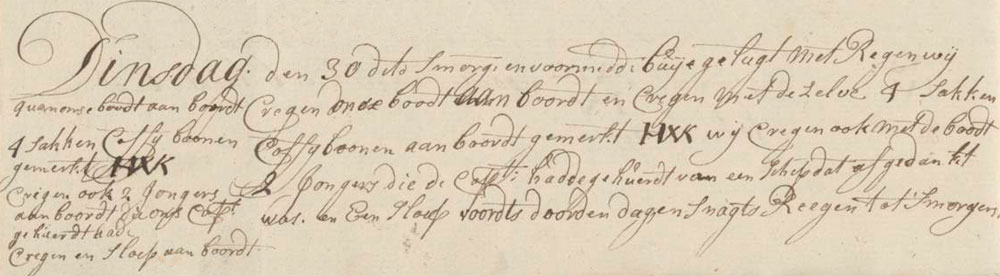 Dinsdag den 30 dito Smorg: en voormidd: buije gelugt Met Regen wij
Cregen onse boodt aan boordt en Cregen met de zelve 4 Sakken
Coffyboonen aan boordt gemerkt HXK wij Cregen ook met de boodt
2 Jongers die de Capt: hadde gehuerdt van een Schip dat afgedankt
was. en Een Sloep voordts door den dagen Snagts Reegen tot Smorgen
quam onse boodt aan boordt
4 Sakken Coffy boonen
gemerkt HXK
Cregen ook 2 Jongers
aan boordt die ons Capt:
gehuerdt hadt
Cregen en Sloep aan boordt